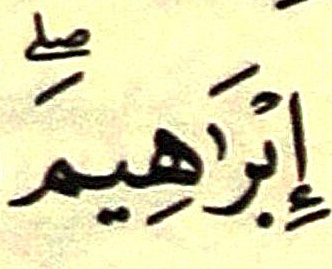 إِبْرَٰهِيمَۖ